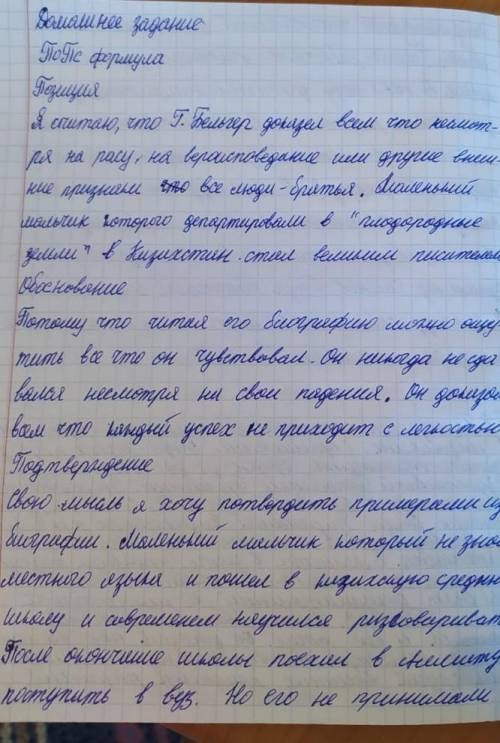 Домашнее задание
ПоПс формула
Позиция
Я считаю, что Г. Бельгер доказал всем что несмот-
ря на расу, на вероисповедание или другие внеш-
ние признаки что все люди-братья. Маленький
мальчик которого департировали в "плодородные
земли" в Казахстан стал великим писателем
Обоснование
Потому что читая его биографию можно ощу
тить все что он чувствовал. Он никогда не сда
вался несмотря на свои падения. Он доказал
всем что каждый успех не приходит с легкостью
Подтверждение
Свою мысль я хочу потвордить примерами из
биографии. Маленький мальчик который не знал
местного языка и пошел в казахскую средню
школу и современем научился разговариват
После окончание школы поехал в Алмату
поступить в вуз. Но его не принимали